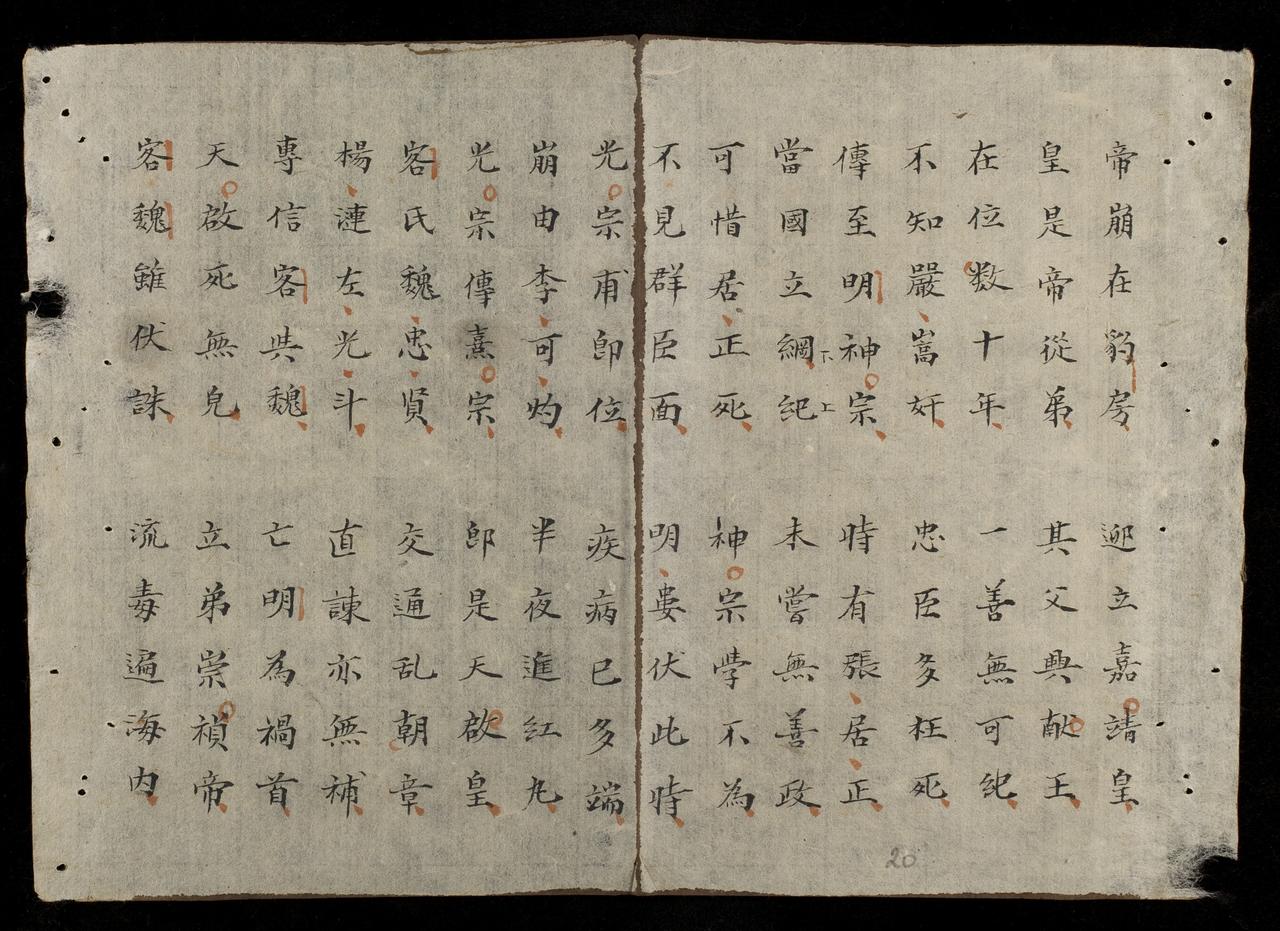 帝崩在豹房 迎立嘉靖皇
皇是帝從弟 其父興献王
在位数十年 一善無可紀
不知嚴嵩奸 忠臣多枉死
傳至明神宗 時有張居正
當國立綱紀 未嘗無善政
下上
可惜居正死 神宗學不為
不見群臣面 明婁伏此時
光宗甫即位 疾病已多端
崩由李可灼 半夜進紅丸
光宗傳熹宗 即是天啟皇
客氏魏忠賢 交通乱朝章
楊漣左光斗 直諫亦無補
專信客共魏 亡明為禍首
天啟死無兒 立弟崇禎帝
客魏雖伏誅 流毒遍海内
20